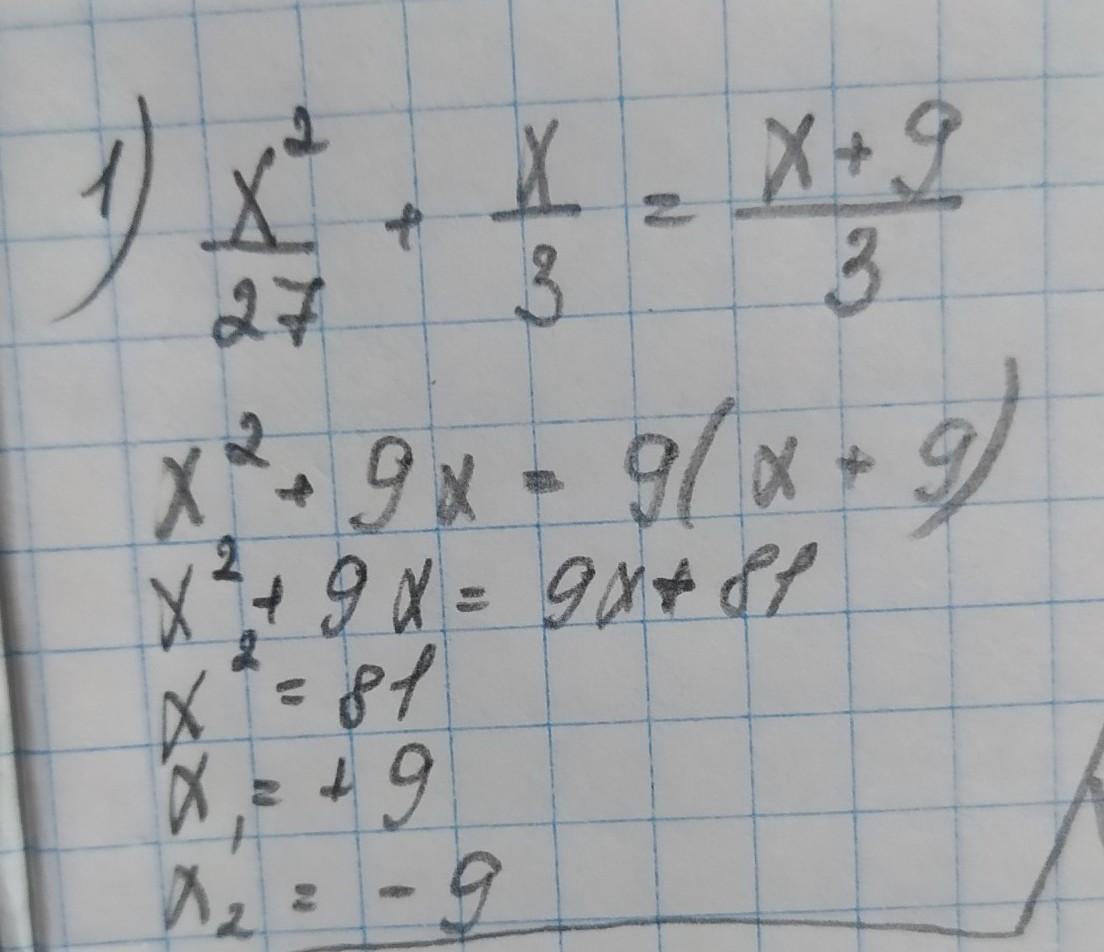 1) x²/27 + x/3 = (x + 9)/3
x² + 9x = 9(x + 9)
x² + 9x = 9x + 81
x² = 81
x₁ = + 9
x₂ = - 9